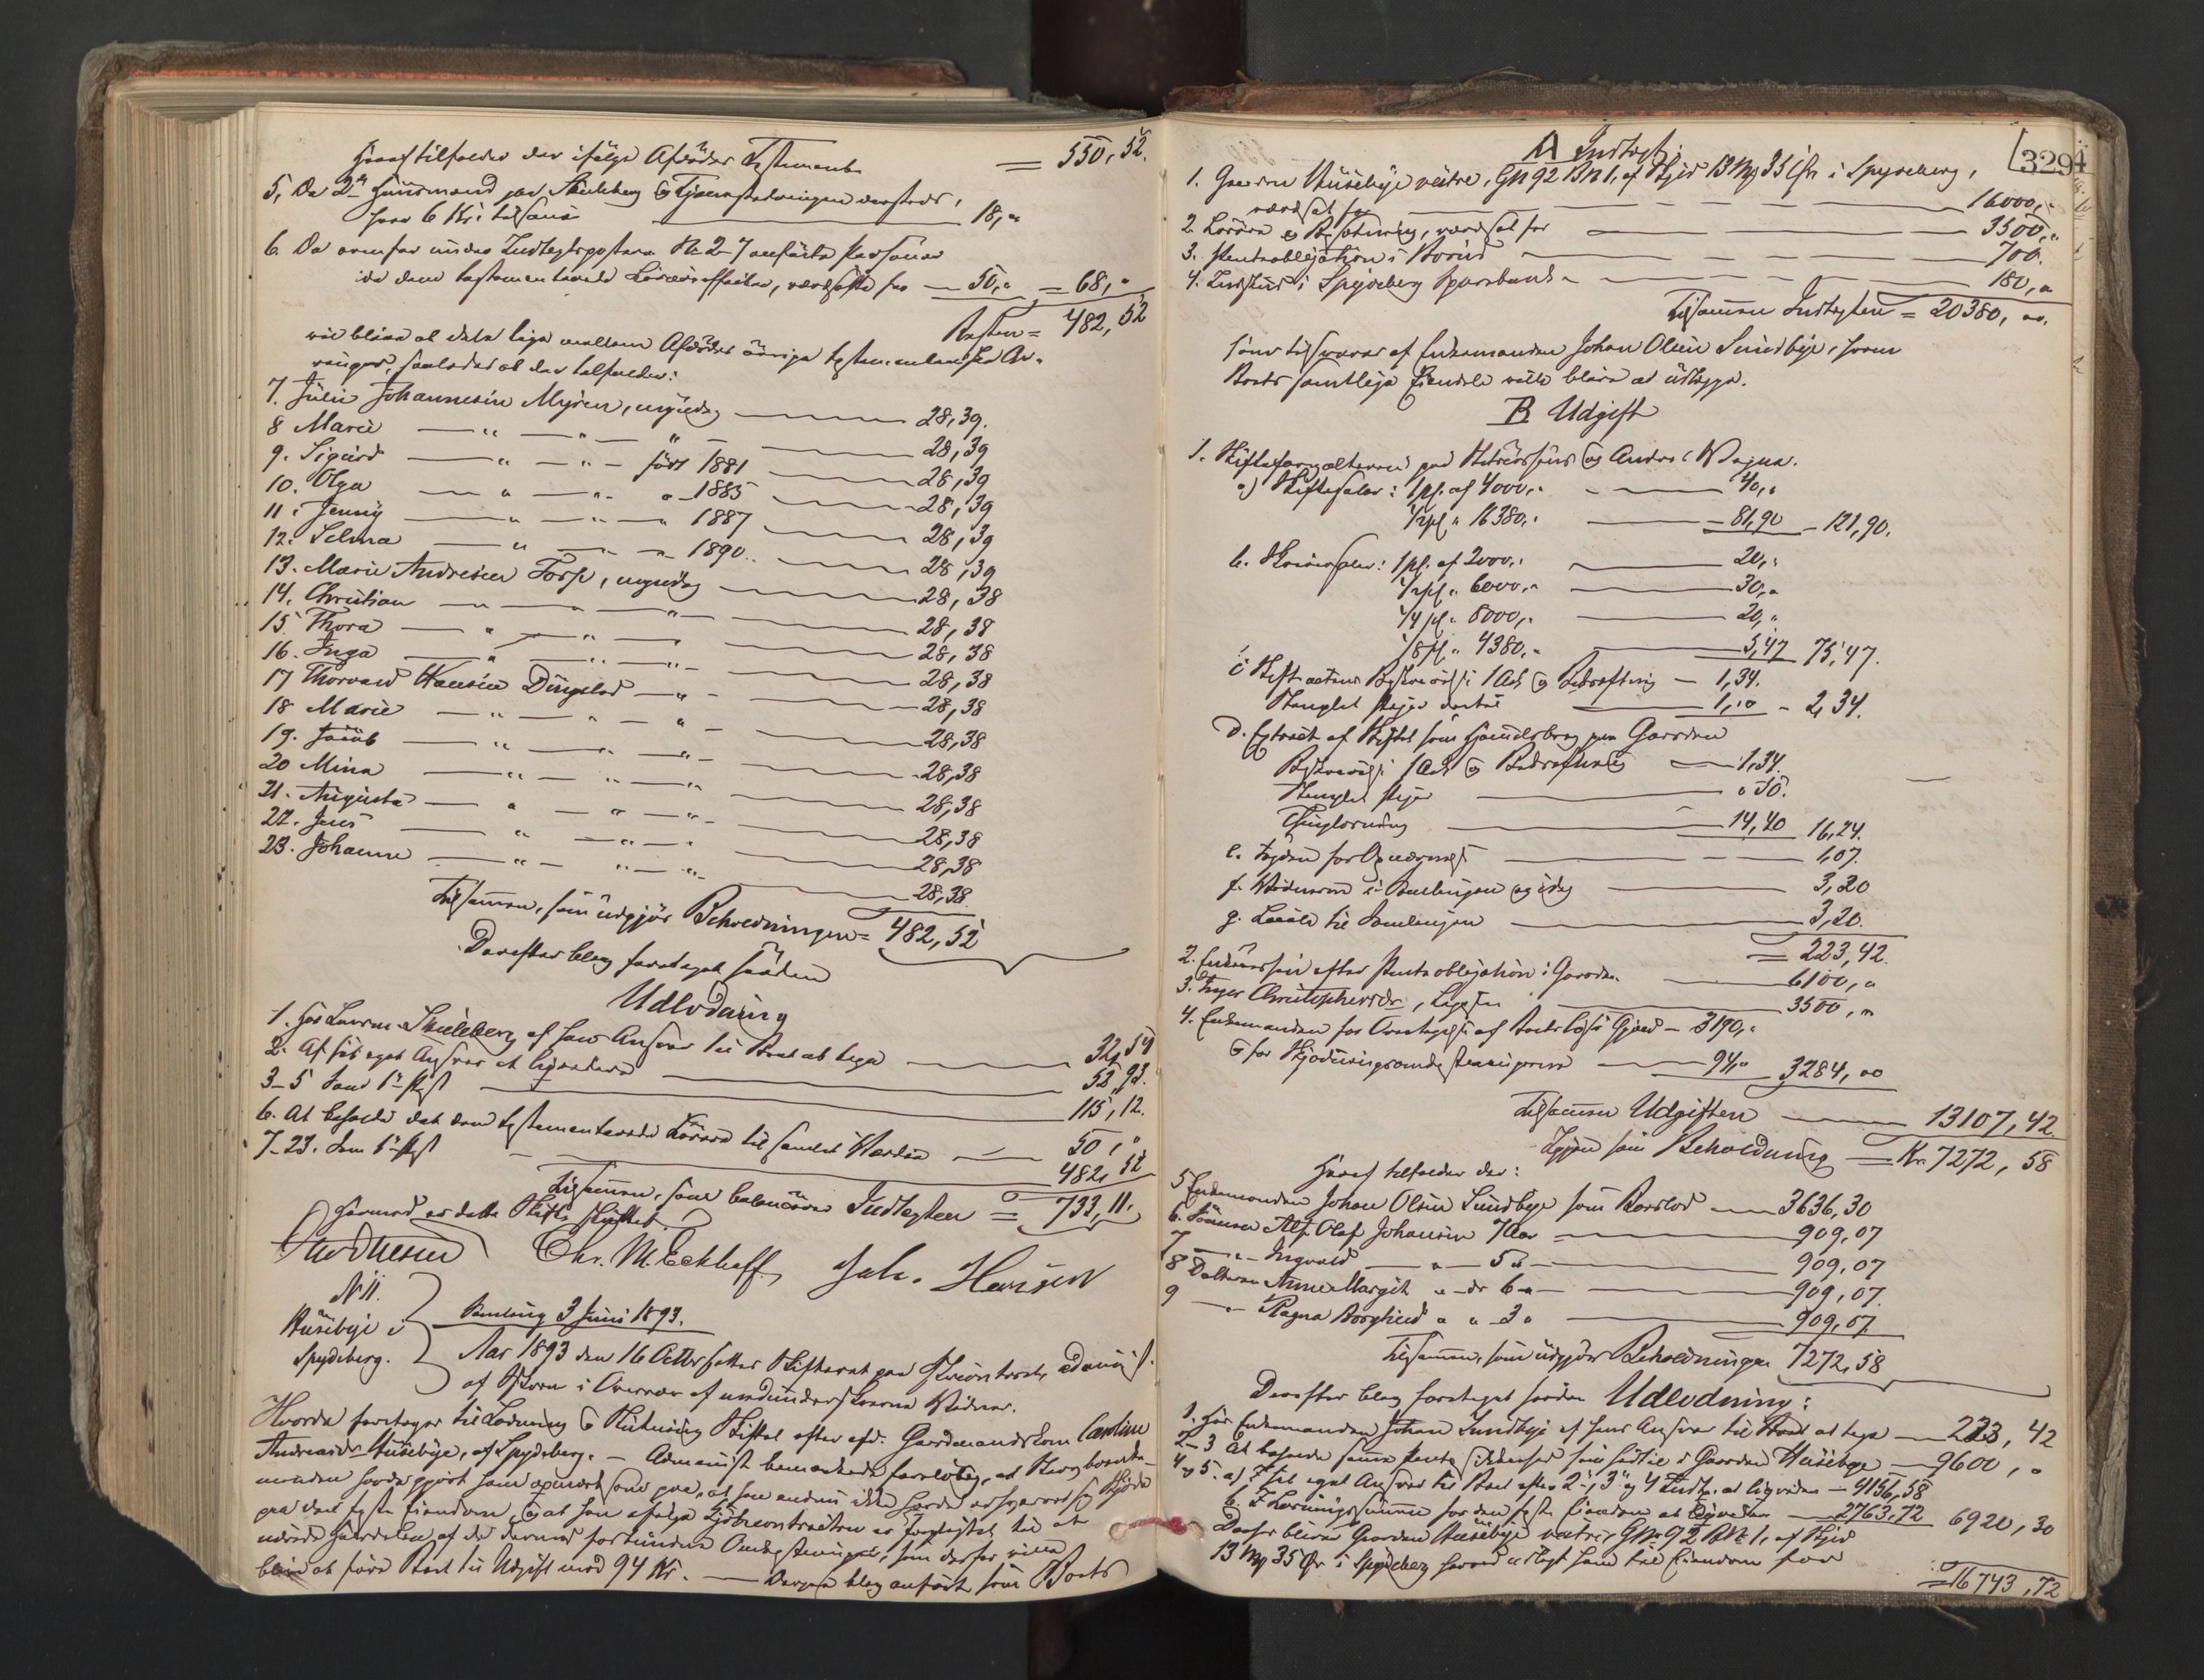 Heraf tilfalder der ifølge Afdødes Testament = 550,52.
5, De 2de Huusmænd paa Skuleberg og Tjenestedrengen dersteds,
hver 6 Kr, tilsams 18,"
6. De ovenfor under Indtægtsposterne No 2-7 anførte Personer
de dem testamenterede Løsøreeffecter, værdsatte for 50,"  = 68,"
Resten = 482,52
vil blive at dele lige mellem Afdødes øvrige testamentariske Ar-
vinger, saaledes at der tilfalder:
7. Julie Johannesen Myrer, myndig 28,39.
8 Marie — " — " — " — 28,39
9. Sigurd — " — " — født 1881 28,39
10. Olga — " — " — " 1885 28,39
11. Jenny — " — " — " 1887 28,39
12. Selma — " — " — " 1890 28,39
13. Marie Andresen Torp, myndig 28,38
14. Christian — " — " — " 28,38
15 Thora — " — " — " 28,38
16. Inga — " — " — " 28,38
17 Thorvald Hansen Dingstad — " — 28,38
18 Marie — " — " — " — 28,38
19. Jacob — " — " — " — 28,38
20 Mina — " — " — " — 28,38
21. Augusta — " — " — " — 28,38
22. Jens — " — " — " — 28,38
23. Johanne — " — " — " — 28,38.
Tilsammen, som udgjør Beholdningen = 482,52
Derefter blev foretaget saadan
Udlodning
1. Hos Skuleberg af hans Ansvar til Boet at tage 32,54
2. Af sit eget Ansvar at liqvidere 52,93.
3-5 Som 1ste Post 115,12.
6. At beholde det dem testamenterede Løsøre til samlet Værdie 50,"
7-23. Som 1ste Post 482,52
Tilsammen, som balancerer Indtægten = 733,11.
Hermed er dette Skifte sluttet.
Chr. M. Eckhoff. Joh. Hansen
N 11.
Husebye i
Spydeberg.
Samling 3 Juni 1893.
Aar 1893 den 16 Octbr sattes Skifteret paa Skrivercontoret
af i Overvær af undunderskrevne Vidner.
Hvorda foretoges til Lodning og Slutning Skiftet efter afd. Gaardmandskone Caroline
Andreasdr Husebye, af Spydeberg. — Administr bemærkede foreløbig, at
manden havde gjort ham opmærksom paa, at han endnu ikke havde erhvervet sig Skjøde
paa den faste Eiendom, og at han ifølge Kjøbecontracten er forpligtet til at
udrede Halvdelen af de dermed forbundne Omkostninger, som derfor ville
blive at føre Boet til Udgift med 94 Kr. — Derpaa blev anført som Boets
329
A Indtægt:
1. Gaarden Husebye vestre, Gn 92 Bn 1, af Skyld 13 Mg 35 Øre i Spydeberg,
værdsat for 16000,"
2. Løsøre og Besætning, værdsat for 3500,"
3. Panteobligation i 700.
4. Indskud i Spydeberg Sparebank 180,"
Tilsammen Indtægten = 20380,00.
som tilsvares af Enkemanden Johan Olsen Sundbye, hvem
Boets samtlige Eiendele ville blive at udlægge.
B Udgift
1. Skifteforvalteren paa Retskrivernes og Andres Vegne.
a) Skiftesalær: 1 pCt. af 4000," 40,"
½ pCt. " 16380," 81,90 — 121,90.
b. Skriversalær: 1 pCt. af 2000," 20,"
½ pCt. " 6000," 30,"
¼ pCt. " 8000," 20,"
⅛ pCt. " 4380," 5,47 75,47.
c Skifteactens Beskrivelse 1 Ark og Bekræftelse — 1,34.
Stemplet Papir dertil 1,00 — 2,34.
d. Extract af Skiftet som Hjemmelsbrev paa Gaarden
Beskrivelse 1 Ark og Bekræftelse 1,34.
Stemplet Papir " 50.
Thinglæsning 14,40 16,24.
e. for 1,07.
f. Vidnerne i Samlingen og idag 3,20
g. Locale til Samlingen 3,20.
= 223,42.
2. efter Panteobligation i Gaarden 6100,"
3. Inger Christophersdr, 3500,"
4. Enkemanden for Overtagelse af Boets løse Gjæld — 3190,"
og for Skjødningsomkostningerne 94," 3284,00
Tilsammen Udgiften 13107,42.
Igjen som Beholdning = Kr. 7272,58
Heraf tilfalder der:
5 Enkemanden Johan Olsen Sundbye som Boeslod 3636,30
6. Sønnen Alf Olaf Johansen 7 Aar 909,07
7 — " — Ingvald — " — 5 " 909,07
8 Datteren Anne Margit " — dr 6 " 909,07.
9 — " — Ragna Borghild " " 3 " 909,07.
Tilsammen, som udgjør Beholdningen 7272,58
Derefter blev foretaget saadan Udlodning:
1. Hos Enkemanden Johan Sundbye af hans Ansvar til Boet at tage 223,42
2-3 At beholde samme Pante som hidtil i Gaarden Husebye 9600,"
4 og 5. a) I sit eget Ansvar til Boet efter 2den, 3die og 4 Indtp. at liqvidere 4156,58
b. I Løsningssummen for den faste Eiendom at liqvidere 2763,72 6920,30
Derfor bliver Gaarden Husebye vestre, Gn 92 Bn 1, af Skyld
13 Mg 35 Øre i Spydeberg herved udlagt ham til Eiendom for
= 16743,72